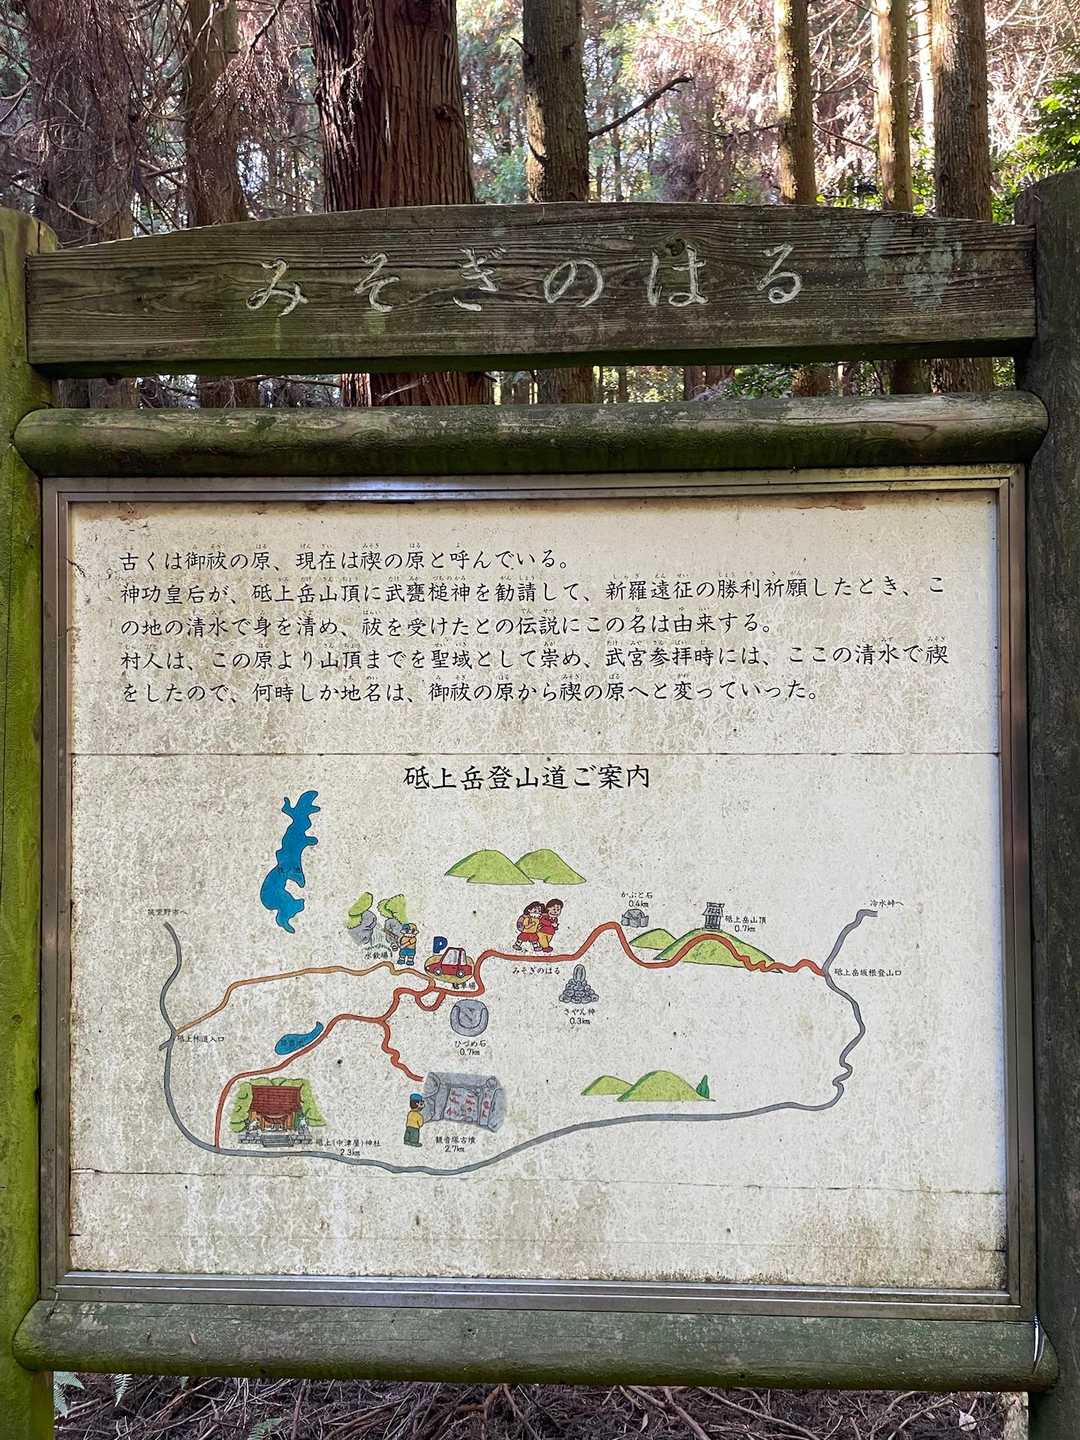 みそぎのはる
古くは御祓の原、現在は禊の原と呼んでいる。
神功皇后が、砥上岳山頂に武甕槌神を勧請して、新羅遠征の勝利祈願したとき、こ
の地の清水で身を清め、祓を受けたとの伝説にこの名は由来する。
村人は、この原より山頂までを聖域として崇め、武宮参拝時には、ここの清水で禊
をしたので、何時しか地名は、御祓の原から禊の原へと変っていった。
砥上岳登山道ご案内
かぶと石
0.4km
筑紫野市へ
冷水峠へ
砥上岳山頂
0.7km
水飲場
P
駐車場
みそぎのはる
砥上岳坂根登山口
さやん神
0.3km
砥上林道入口
ひづめ石
0.7km
砥上(中津屋)神社
2.3km
観音塚古墳
2.7km